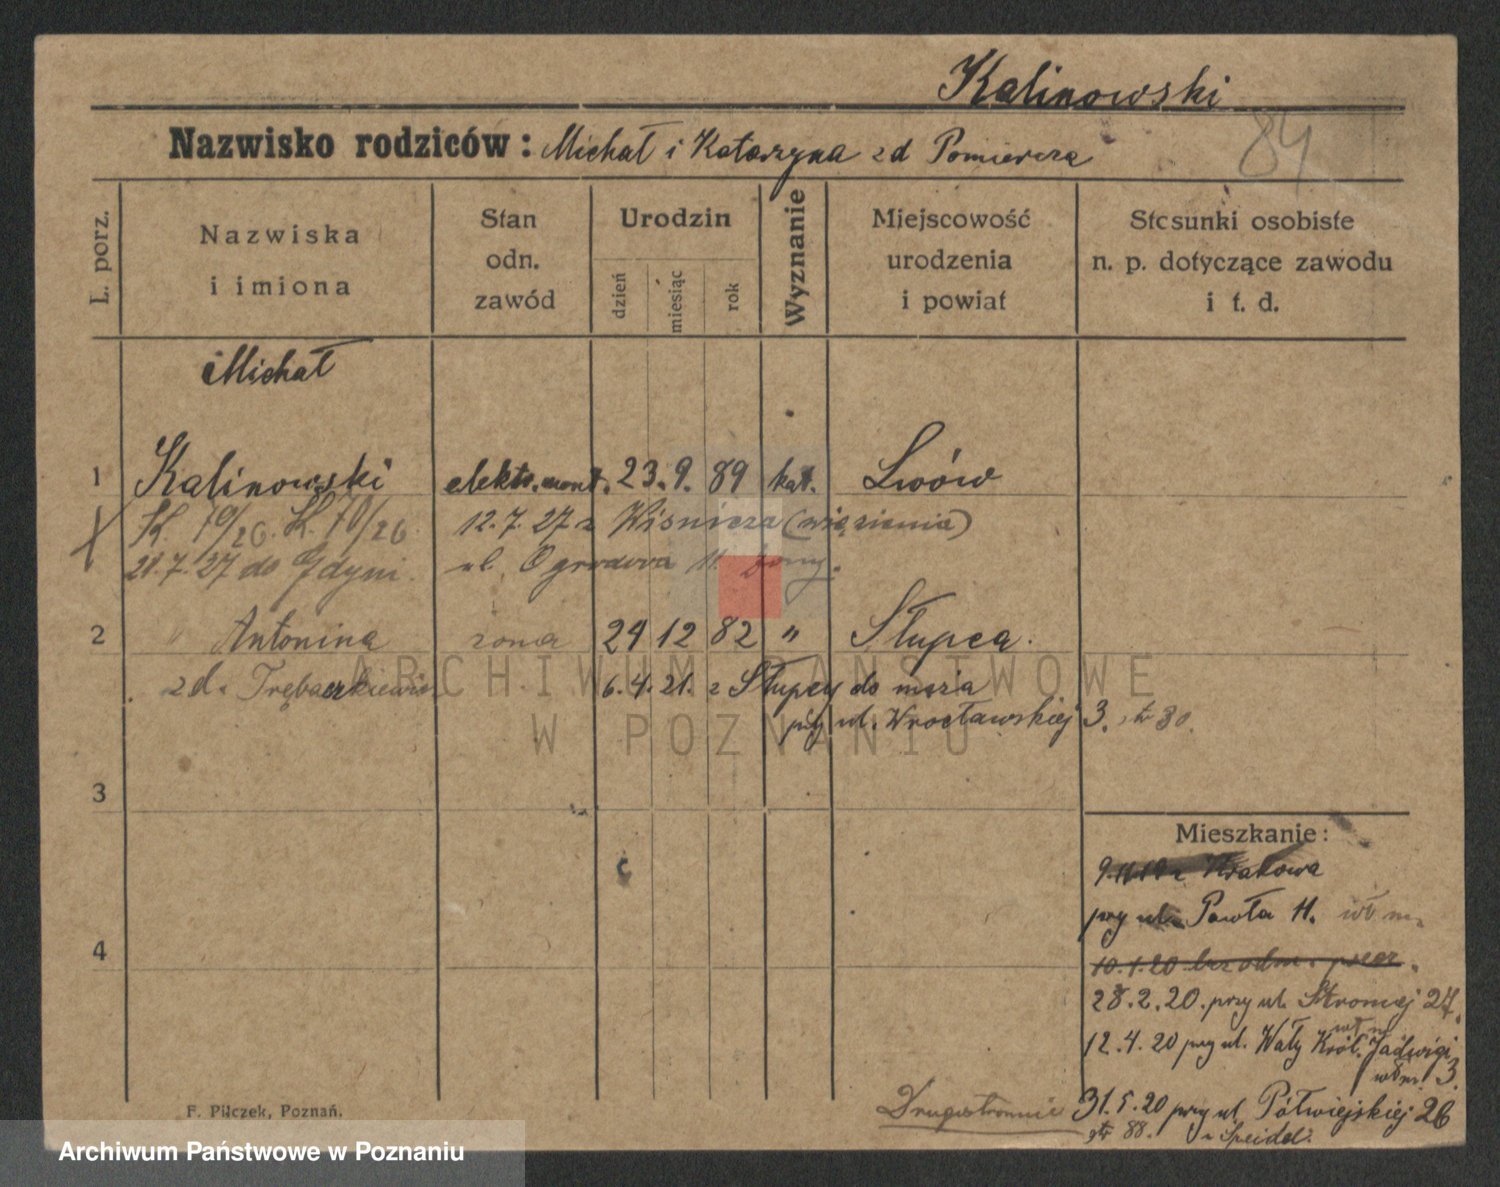 Kalinowski
84
Nazwisko rodziców: Michał i Katarzyna zd Pomiercza
L. porz.
Nazwiska i imiona
Stan odn. zawód
Urodzin
dzień miesiąc rok
Wyznanie
Miejscowość urodzenia i powiat
Stosunki osobiste n. p. dotyczące zawodu i t. d.
Michał
1 Kalinowski elektr. mont. 23. 9. 89 kat. Lwów
K. 70/26. K. 70/26 12.7.27 z Wiśnicza (więzienia)
21.7.27 do Gdyni. ul. Ogrodowa 11.
2 " Antonina żona 24 12 82 " Słupca.
zd. Trębaczkiewicz 6.4.21. z Słupcy do męża
przy ul. Wrocławskiej 3.
3
Mieszkanie:
z Krakowa
przy ul. Pawła 11.
4
10.1.20 bez odm.
28.2.20. przy ul. Stromej 27.
12.4.20 przy ul. Wały Król. Jadwigi 3.
Drugostronnie 31.5.20 przy ul. Półwiejskiej 26
str 88. u Speidel.
F. Pilczek, Poznań.
ARCHIWUM PAŃSTWOWE
W POZNANIU
Archiwum Państwowe w Poznaniu